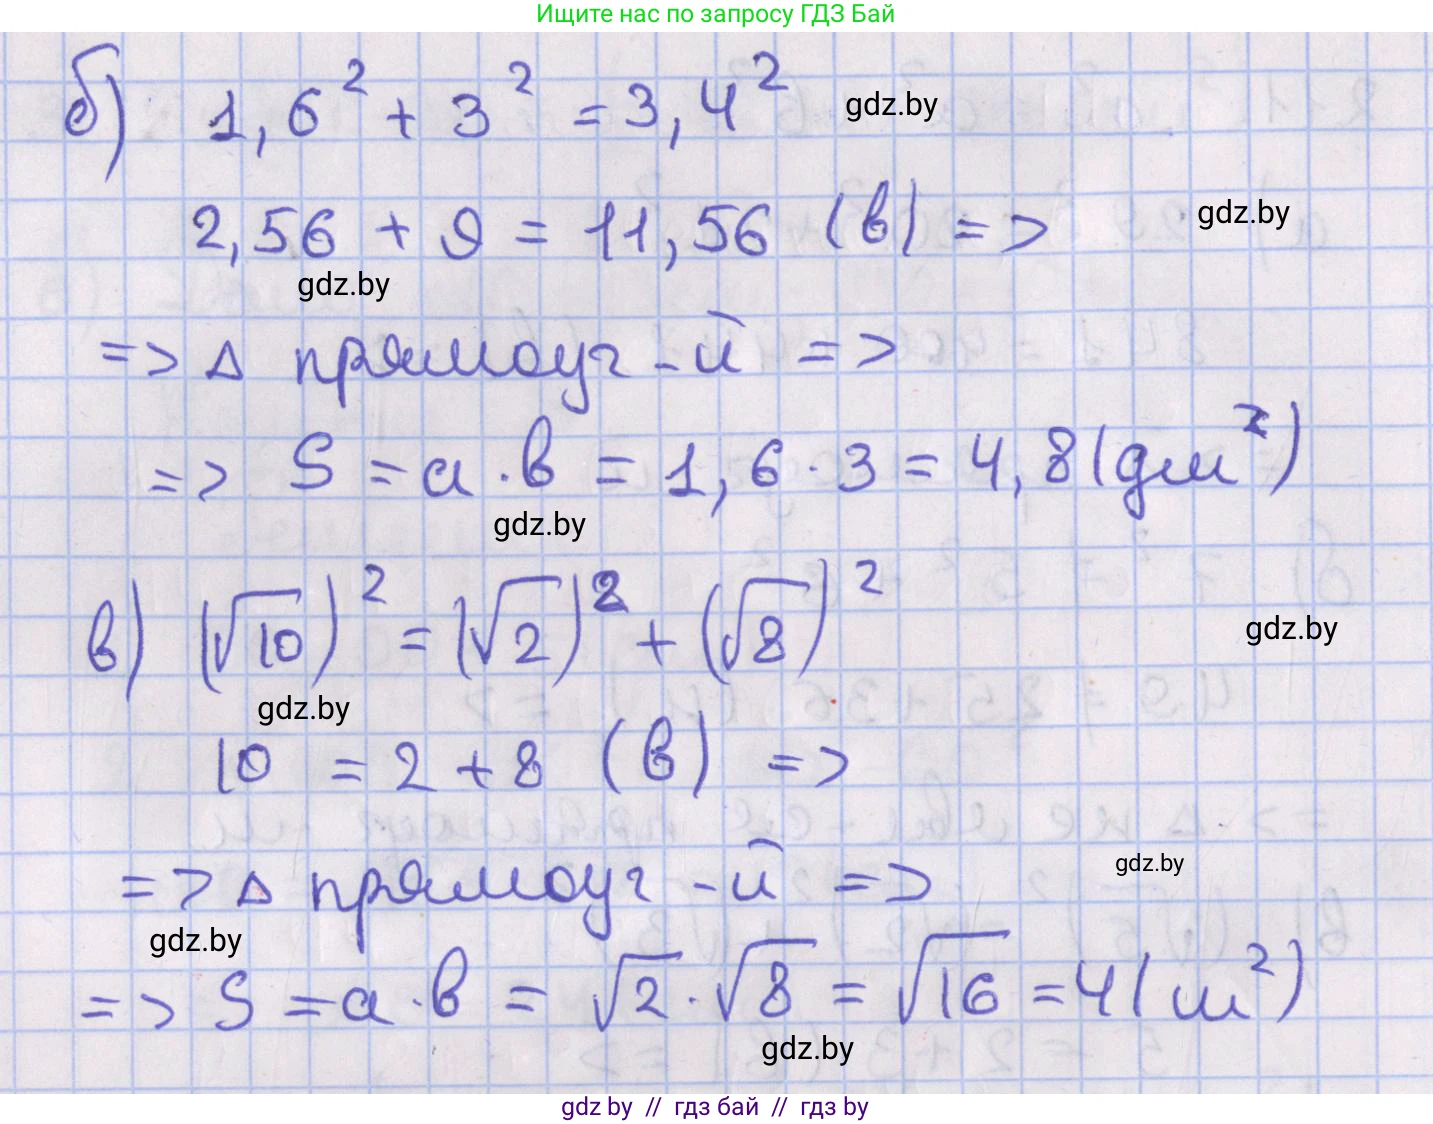 Ищите нас по запросу ГДЗ Бай
б) 1,6² + 3² = 3,4² gdz.by
2,56 + 9 = 11,56 (в) => gdz.by
gdz.by
=> Δ прямоуг-й =>
=> S = a · b = 1,6 · 3 = 4,8 (дм²)
gdz.by
в) (√10)² = (√2)² + (√8)²
gdz.by
gdz.by
10 = 2 + 8 (в) =>
=> Δ прямоуг-й => gdz.by
gdz.by
=> S = a · b = √2 · √8 = √16 = 4 (м²)
gdz.by
gdz by // гдз бай // гдз by